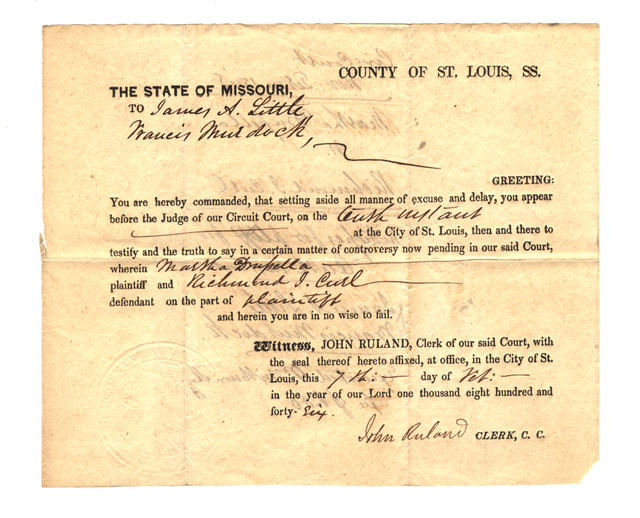 COUNTY OF ST. LOUIS, SS.
THE STATE OF MISSOURI,
TO James A. Little
Francis Murdock,
GREETING:
You are hereby commanded, that setting aside all manner of excuse and delay, you appear
before the Judge of our Circuit Court, on the tenth instant
at the City of St. Louis, then and there to
testify and the truth to say in a certain matter of controversy now pending in our said Court,
wherein Martha Drusella
plaintiff and Richmond J. Curl
defendant on the part of plaintiff
and herein you are in no wise to fail.
Witness, JOHN RULAND, Clerk of our said Court, with
the seal thereof hereto affixed, at office, in the City of St.
Louis, this 7th:— day of
in the year of our Lord one thousand eight hundred and
forty-Six.
John Ruland CLERK, C. C.